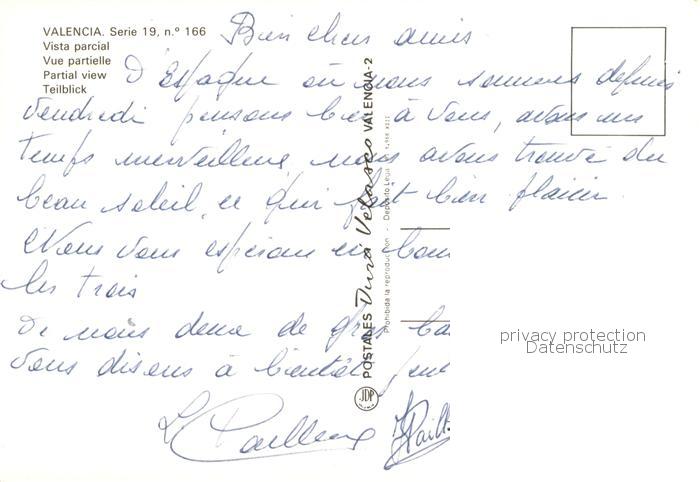 VALENCIA. Serie 19, n.º 166
Vista parcial
Vue partielle
Partial view
Teilblick
Bien chers amis
D'Espagne où nous sommes depuis
Vendredi pensons bien à vous, avons un
temps merveilleux, nous avons trouvé du
beau soleil, ce qui fait bien plaisir
Nous vous espérons en bonn
les trois
De nous deux de gros ba
Vous disons à bientôt
POSTALES Durá Velasco VALENCIA-2
Prohibida la reproducción - Depósito Legal
JDP
privacy protection
Datenschutz